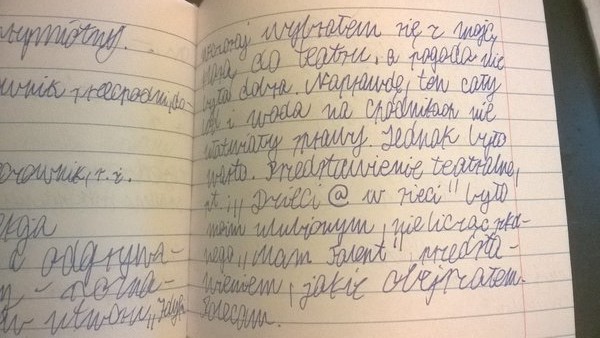 wnik przechodni, do-
a odgrywa-
- dozna-
w utworu,,
Wczoraj wybrałem się z moją
klasą do teatru, a pogoda nie
była dobra. Naprawdę, ten cały
lód i woda na chodnikach nie
ułatwiały sprawy. Jednak było
warto. Przedstawienie teatralne,
pt. ,,Dzieci @ w sieci" było
moim ulubionym, nie licząc zna-
nego ,,Mam Talent" przedsta-
wieniem, jakie obejrzałem.
Polecam.